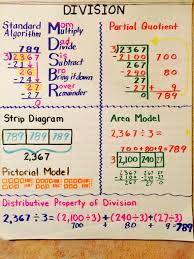 DIVISION
Standard
Algorithm
789
3 2367
-21
26
-24
27
-27
0
Mom
Multiply
Dad
Divide
Sis
Subtract
Bro
Bring it down
Rover
Remainder
Partial Quotient
3 2367
-2100 700
267
-240 80
27
-27 +9
0 789
Strip Diagram
789 789 789
2,367
Pictorial Model
Area Model
2,367 ÷ 3 =
700 + 80 + 9 = 789
3 2,100 240 27
Distributive Property of Division
2,367÷3=(2,100÷3)+(240÷3)+(27÷3)
700 + 80 + 9 =789